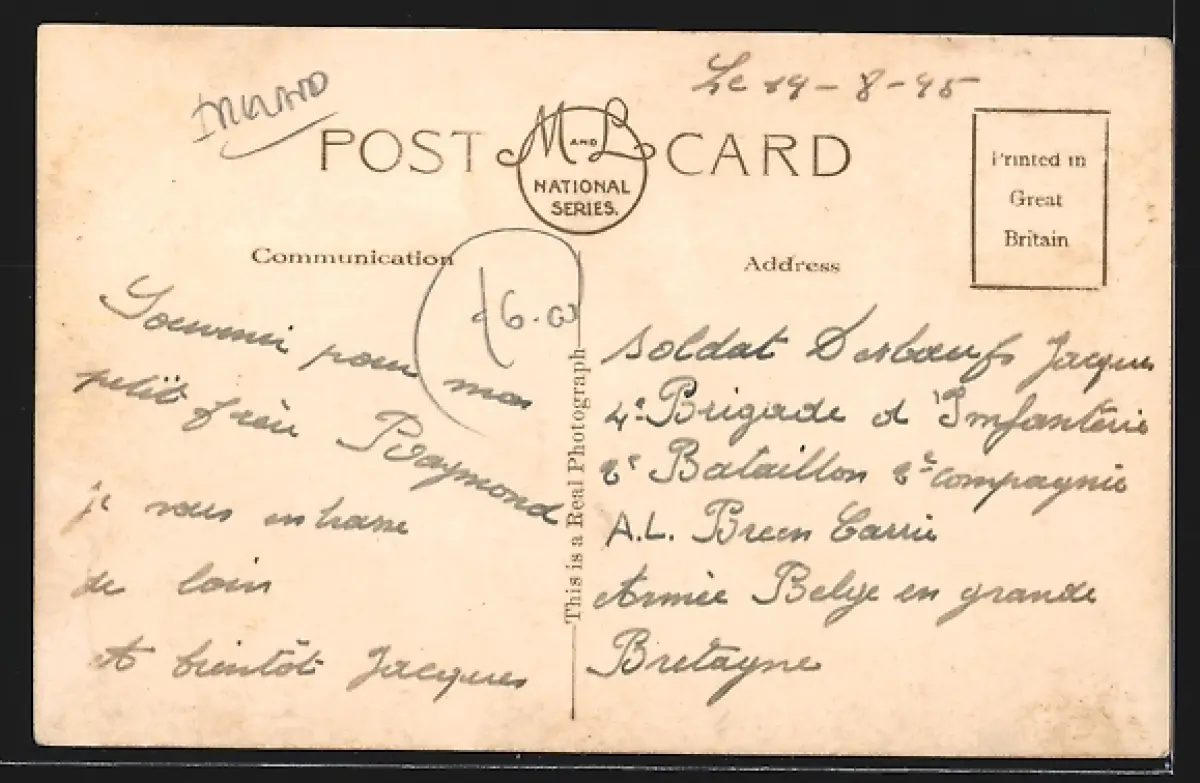 Le 19-8-45
IRELAND
POST CARD
M AND L.
NATIONAL
SERIES.
Printed in
Great
Britain
Communication
Address
6.00
Souvenir pour mon
petit frère Raymond
je vous embrasse
de loin
A bientôt Jacques
This is a Real Photograph
Soldat Desboeufs Jacques
4e Brigade d'Infanterie
2e Bataillon 2e compagnie
A.L. Breen
Armée Belge en grande
Bretagne